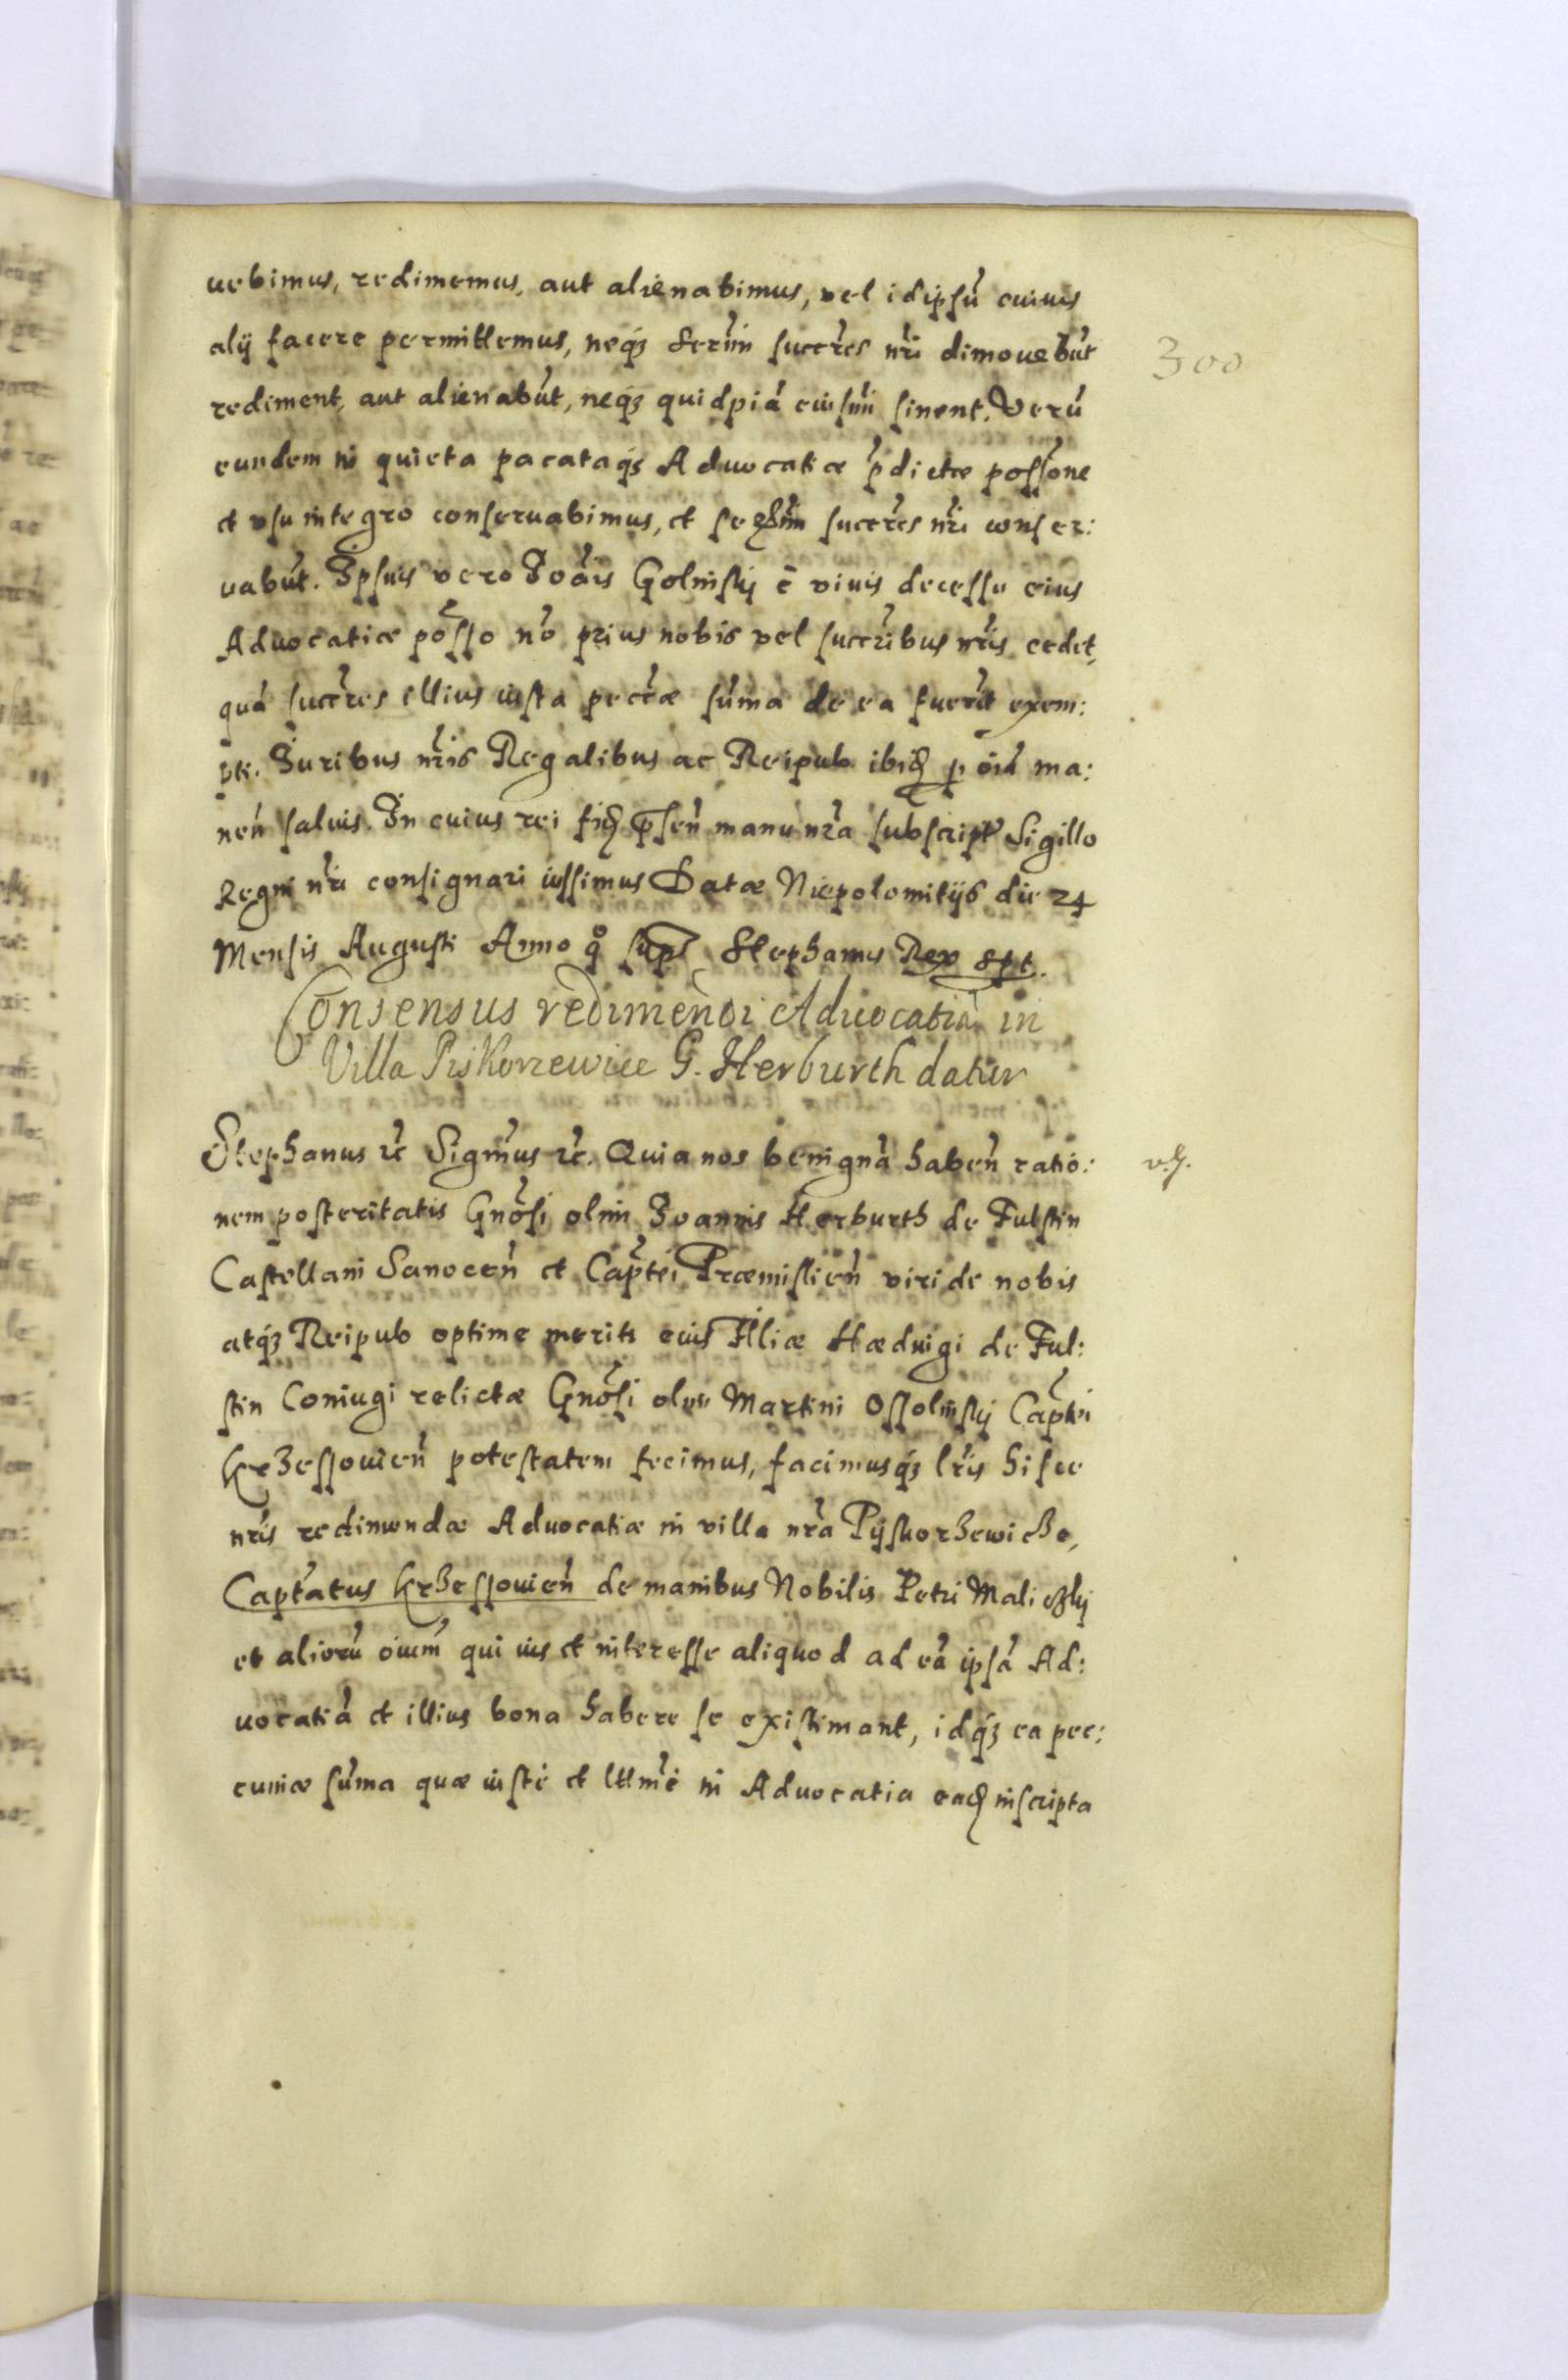 300
uebimus, redimemus, aut alienabimus, vel idipsũ cuiuis
alij facere permittemus, neqȝ Serm̃i succr̃es nr̃i dimouebũt
rediment, aut alienabũt, neqȝ quidpiã eiusm̃i sinent. Verũ
eundem in quieta pacataqȝ Aduocatiæ p̃dictæ possõne
et vsu integro conseruabimus, et succr̃es nr̃i conser:
uabũt. Ipsius vero Ioãis Golinskij ẽ viuis decessu eius
Aduocatiæ põsso nõ prius nobis vel succr̃ibus nr̃is cedet,
quã succr̃es illius iusta pecc̃æ sũma de ea fuerĩt exem:
pti. Iuribus nr̃is Regalibus ac Reipub ibid p oĩa ma:
neñ saluis. In cuius rei fid p̃señ manu nr̃a subscript Sigillo
Regni nr̃i consignari iussimus Datæ Niepolomitijs die 24
Mensis Augusti Anno q̊ sup̃ Stephanus Rex spt.
Consensus redimendi Aduocatiã in
Villa Piskorzewice G. Herburth datur
Stephanus ꝛc̃ Sigm̃us ꝛc̃. Quia nos benignã habeñ ratio:
nem posteritatis Gnõsi olim Ioannis Herburth de Fulstin
Castellani Sanoceñ et Capt̃ei Præmislieñ viri de nobis
atqȝ Reipub optime meriti eius Filiæ Hæduigi de Ful:
stin Coniugi relictæ Gnõsi olim Martini Ossolinskij Capt̃ei
Krzessouieñ potestatem fecimus, facimusqȝ lr̃is hisce
nr̃is redimendæ Aduocatiæ in villa nr̃a Pijskorzewicze,
Capt̃atus Krzessouieñ de manibus Nobilis Petri
et aliorũ oĩum qui ius et interesse aliquod ad eã ipsã Ad:
uocatiã et illius bona habere se existimant, idqȝ ea pec:
cuniæ sũma quæ iustè et lttm̃è in Aduocatia ead inscripta